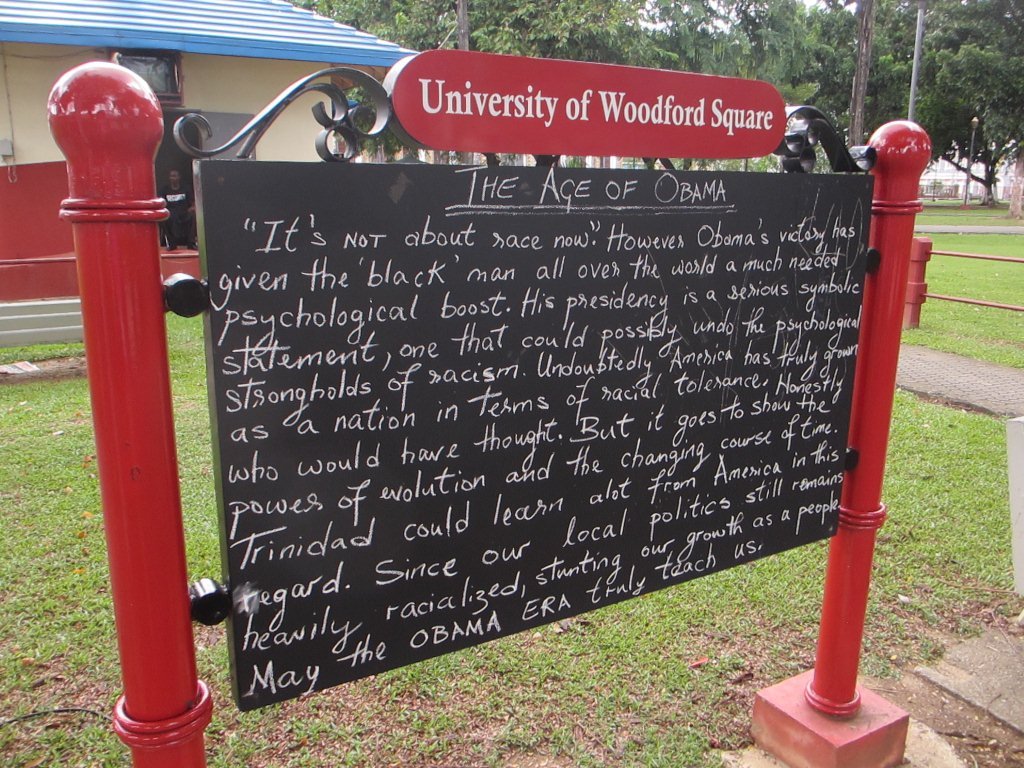 University of Woodford Square
THE AGE OF OBAMA
"It's NOT about race now". However Obama's victory has
given the 'black' man all over the world a much needed
psychological boost. His presidency is a serious symbolic
statement, one that could possibly undo the psychological
strongholds of racism. Undoubtedly America has truly grown
as a nation in terms of racial tolerance. Honestly
who would have thought. But it goes to show the
power of evolution and the changing course of time.
Trinidad could learn alot from America in this
regard. Since our local politics still remains
heavily racialized, stunting our growth as a people
May the OBAMA ERA truly teach us.